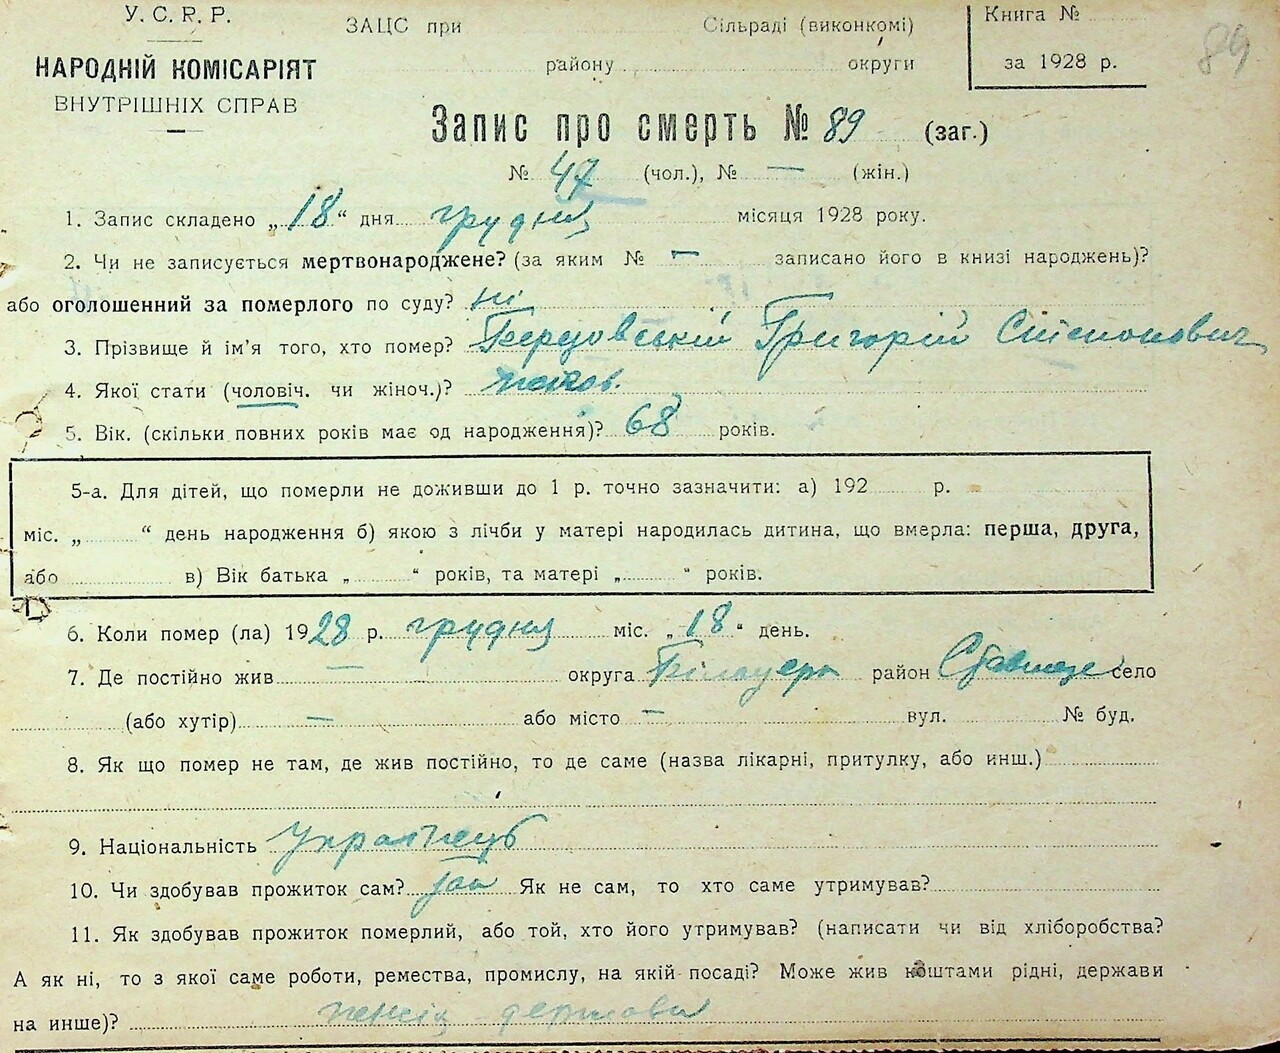 89
У. С. Р. Р.
НАРОДНІЙ КОМІСАРІЯТ
ВНУТРІШНІХ СПРАВ
ЗАЦС при Сільраді (виконкомі)
району округи
Книга №
за 1928 р.
Запис про смерть № 89 (заг.)
№ 47 (чол.), № — (жін.)
1. Запис складено „18“ дня грудня місяця 1928 року.
2. Чи не записується мертвонароджене? (за яким № — записано його в книзі народжень)?
або оголошенний за померлого по суду? ні
3. Прізвище й ім'я того, хто помер? Григорій Степонович
4. Якої стати (чоловіч. чи жіноч.)?
5. Вік. (скільки повних років має од народження)? 68 років.
5-а. Для дітей, що померли не доживши до 1 р. точно зазначити: а) 192 р.
міс. „ “ день народження б) якою з лічби у матері народилась дитина, що вмерла: перша, друга,
або в) Вік батька „ “ років, та матері „ “ років.
6. Коли помер (ла) 1928 р. грудня міс. „18“ день.
7. Де постійно жив — округа Білоцерк район Ставище село
(або хутір) — або місто — вул. № буд.
8. Як що помер не там, де жив постійно, то де саме (назва лікарні, притулку, або инш.)
9. Національність Українець
10. Чи здобував прожиток сам? Як не сам, то хто саме утримував?
11. Як здобував прожиток померлий, або той, хто його утримував? (написати чи від хліборобства?
А як ні, то з якої саме роботи, ремества, промислу, на якій посаді? Може жив коштами рідні, держави
на инше)? пенсія держови